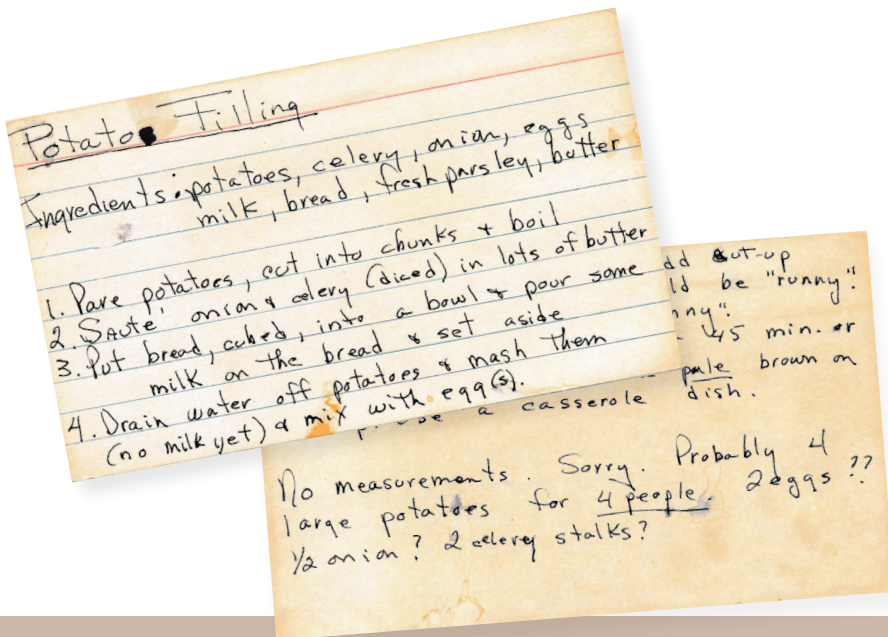 Potato Filling
Ingredients: potatoes, celery, onion, eggs
milk, bread, fresh parsley, butter
1. Pare potatoes, cut into chunks & boil
2. Sauté onion & celery (diced) in lots of butter
3. Put bread, cubed, into a bowl & pour some
milk on the bread & set aside
4. Drain water off potatoes & mash them
(no milk yet) & mix with egg(s).
cut-up
be "runny".
45 min. or
pale brown on
a casserole dish.
No measurements. Sorry. Probably 4
large potatoes for 4 people. 2 eggs ??
1/2 onion? 2 celery stalks?